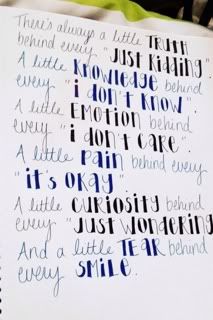 There's always a little TRUTH
behind every "JUST KIDDING".
A little KNOWLEDGE behind
every "i DON'T KNOW".
A little EMOTION behind
every "i DON'T CARE".
A little PAIN behind every
"iT'S OKAY".
A little CURIOSITY behind
every "JUST WONDERING
And a little TEAR behind
every SMILE.